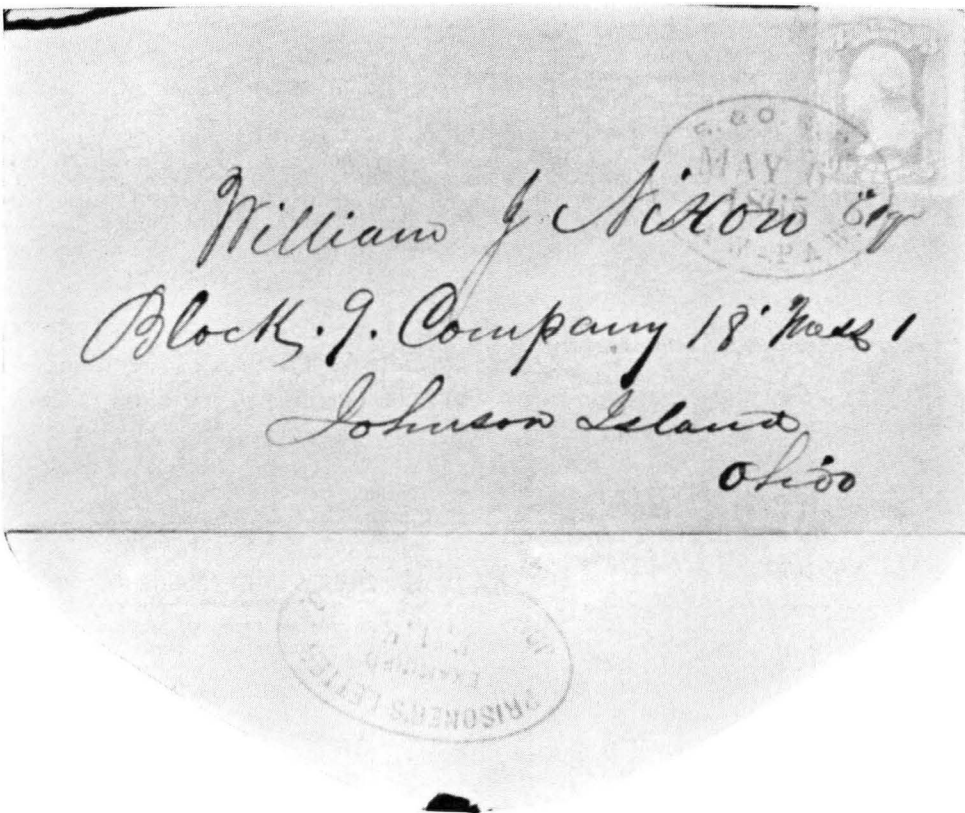 MAY
1865
William J Nixon Esqr
Block. 9. Company 18 Mess 1
Johnson Island
Ohio
PRISONER'S LETTER
EXAMINED